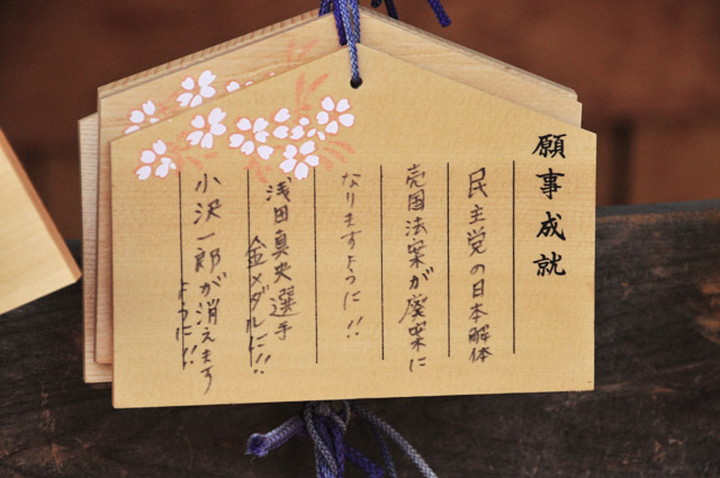 願事成就
民主党の日本解体
売国法案が廃案に
なりますように!!
浅田真央選手
金メダルに!!
小沢一郎が消えます
ように!!